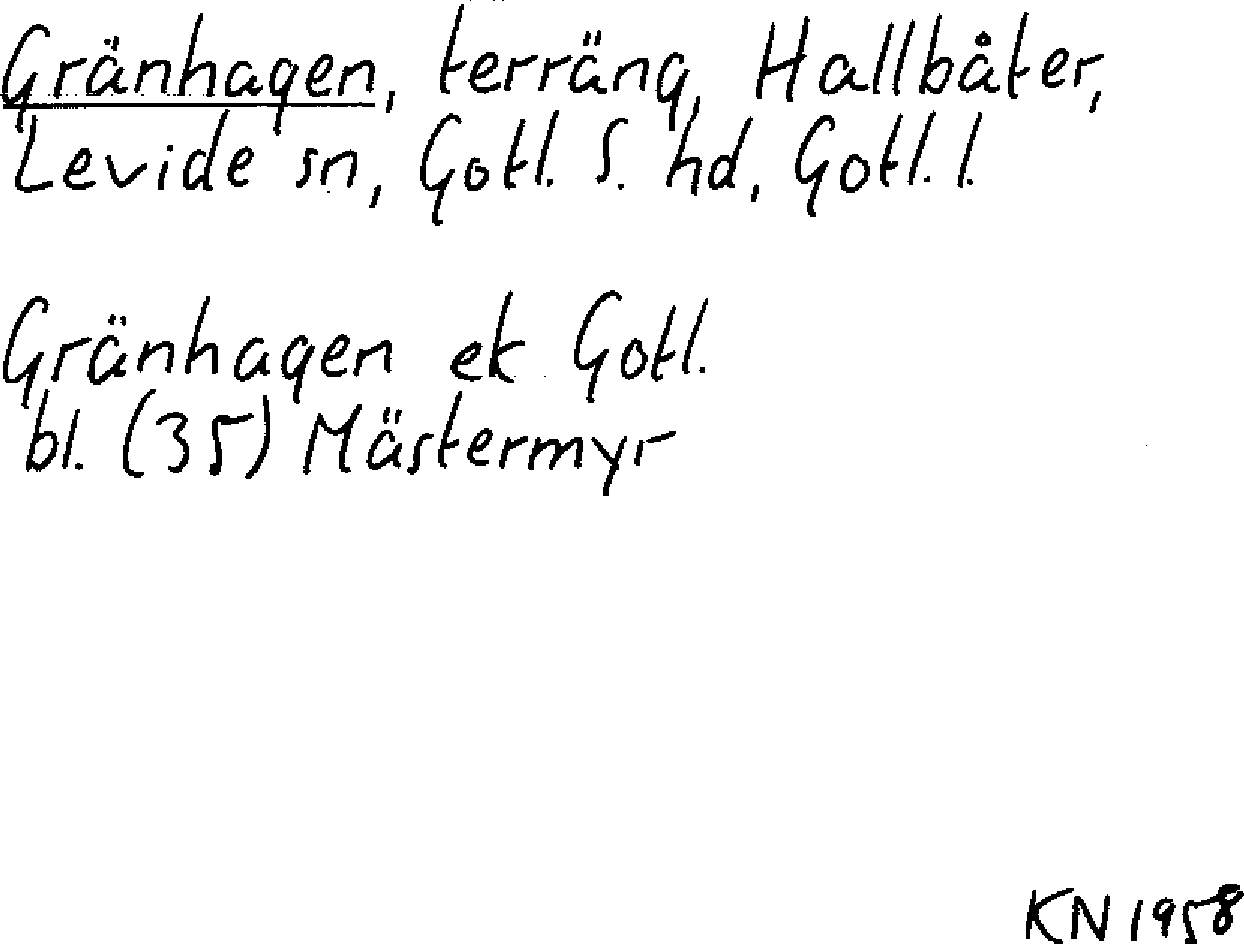 Gränhagen, terräng, Hallbåter,
Levide sn, Gotl. S. hd, Gotl. l.
Gränhagen ek Gotl.
bl. (35) Mästermyr
KN 1958